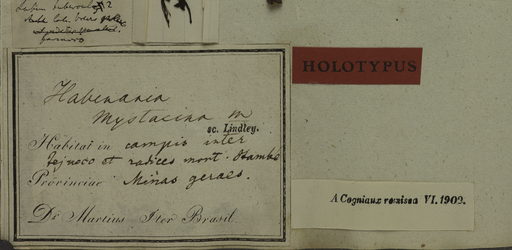 HOLOTYPUS
Habenaria
Mystacina m
sc. Lindley.
Habitat in campis inter
Tejuco et radices mont. Itambé
Provinciae Minas geraes.
Dr Martius Iter Brasil
A Cogniaux revisea VI. 1902.